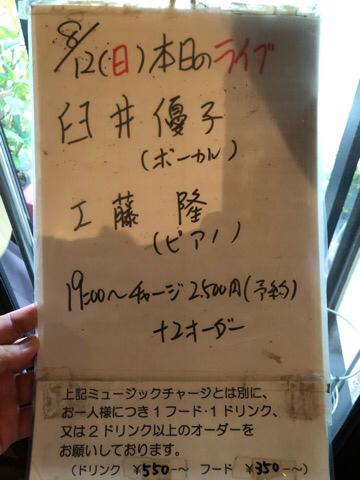 8/12(日)本日のライブ
臼井優子
(ボーカル)
工藤 隆
(ピアノ)
19:00〜チャージ2500円(予約)
+2オーダー
上記ミュージックチャージとは別に、
お一人様につき1フード・1ドリンク、
又は2ドリンク以上のオーダーを
お願いしております。
(ドリンク ¥550〜 フード ¥350〜)